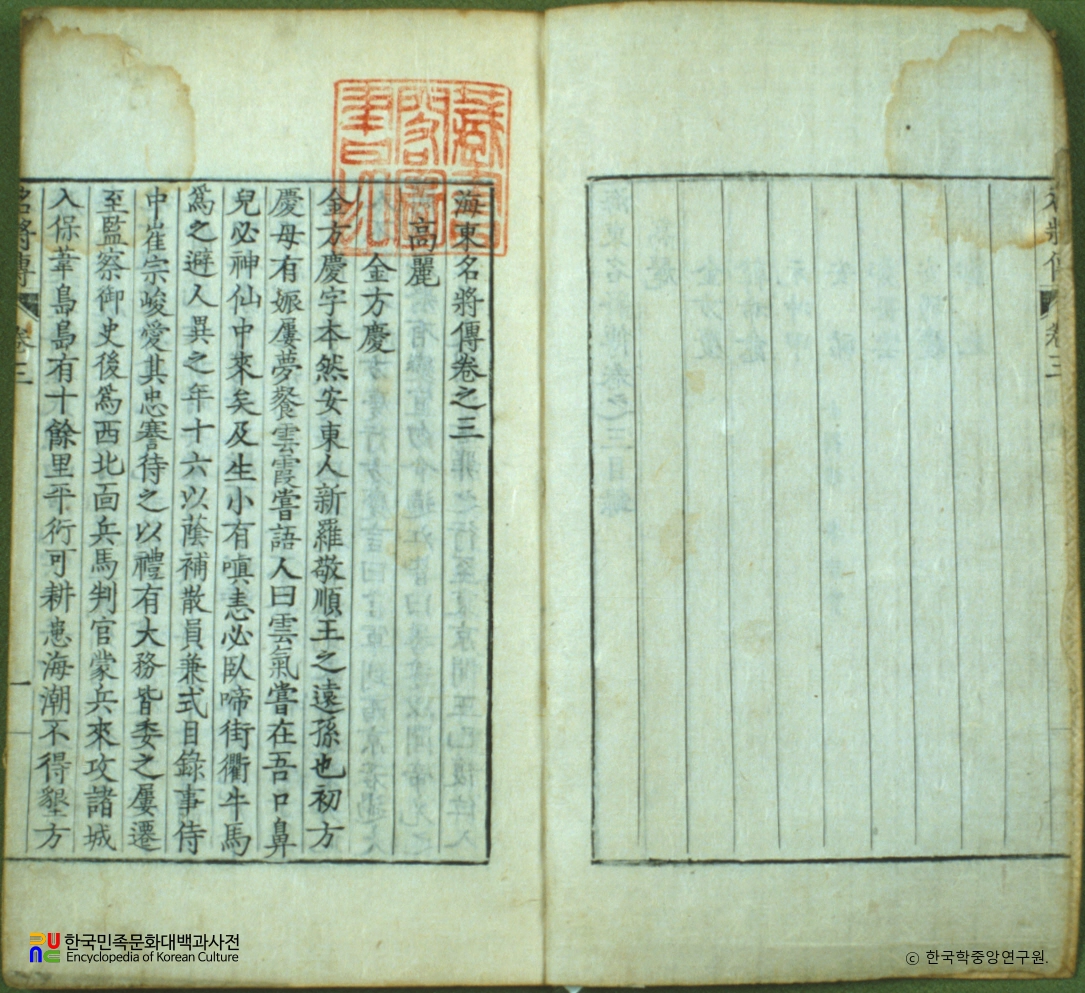 海東名將傳卷之三
高麗
金方慶
金方慶字本然安東人新羅敬順王之遠孫也初方
慶母有娠屢夢餐雲霞嘗語人曰雲氣嘗在吾口鼻
兒必神仙中來矣及生小有嗔恚必臥啼街衢牛馬
爲之避人異之年十六以蔭補散員兼式目錄事侍
中崔宗峻愛其忠謇待之以禮有大務皆委之屢遷
至監察御史後爲西北面兵馬判官蒙兵來攻諸城
入保葦島島有十餘里平衍可耕患海潮不得墾方
名將傳 卷三 一
卷三
한국민족문화대백과사전
Encyclopedia of Korean Culture
ⓒ 한국학중앙연구원.